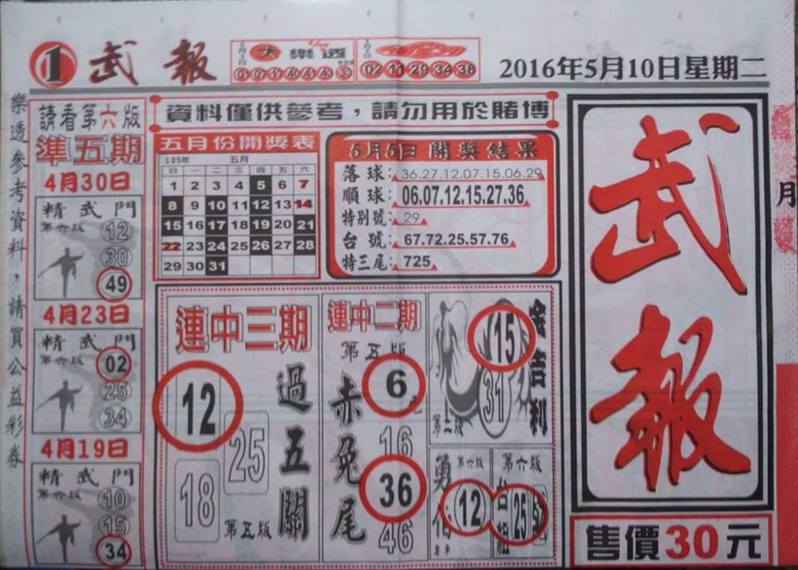 1 武報
大樂透
02 11 29 34 38
2016年5月10日星期二
樂透參考資料，請買公益彩券
請看第六版
準五期
4月30日
精武門
第六版
12
30
49
4月23日
精武門
第六版
02
25
34
4月19日
精武門
第六版
10
15
34
資料僅供參考，請勿用於賭博
五月份開獎表
105年 五月
日 一 二 三 四 五 六
1 2 3 4 5 6 7
8 9 10 11 12 13 14
15 16 17 18 19 20 21
22 23 24 25 26 27 28
29 30 31
5月5日 開獎結果
落球：36.27.12.07.15.06.29
順球：06.07.12.15.27.36
特別號：29
台號：67.72.25.57.76
特三尾：725
連中三期
12
25
18
過五關
第五版
連中二期
第五版
赤兔尾
6
16
36
46
15
31
金吉利
第二版
第六版
12
第六版
台組
25
武報
售價30元
月